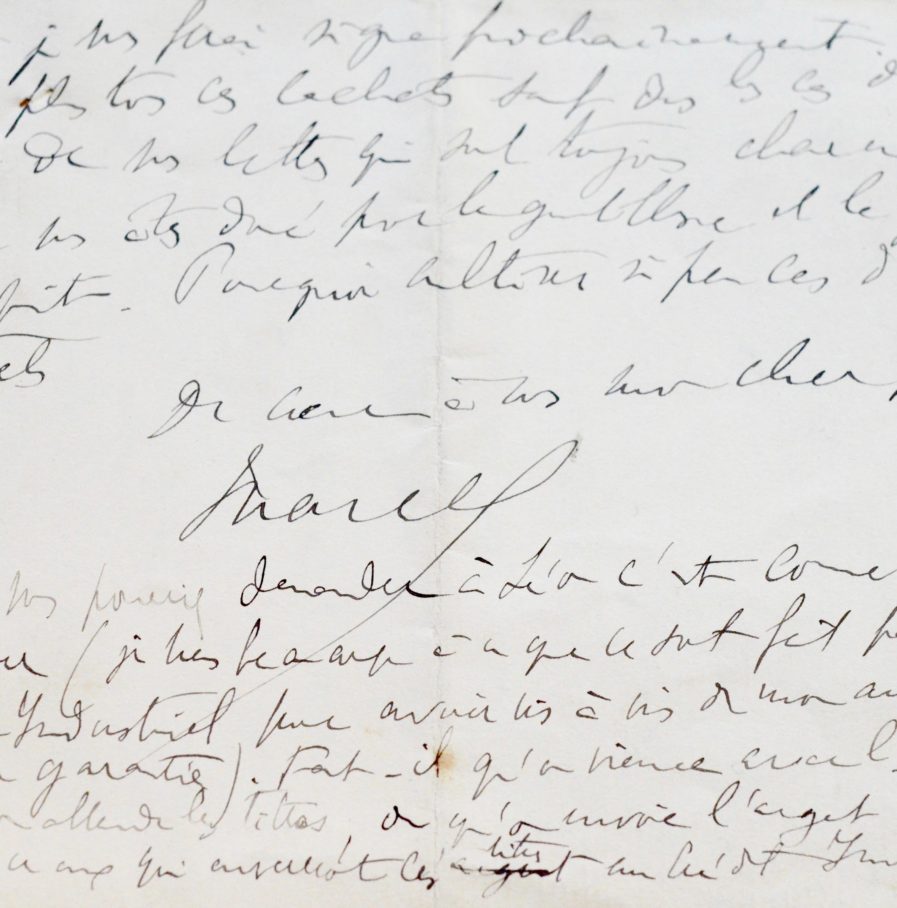 je vous ferai signe prochainement.
plus tous ces cachets sauf dans les cas d
de vos lettres qui sont toujours charm
vous êtes doué pour la gentillesse et le
fait. Pourquoi cultiver si peu ces d
De cœur à vous mon cher
Marcel
vous pourriez demander à Léon c'est comme
(je tiens beaucoup à ce que ce soit fait p
Industriel pour avoir vis à vis de mon
garantie). Faut-il qu'on vienne avec l
on attende les titres, ou qu'on envoie l'argent
ceux qui enverront ces titres au Crédit Ind